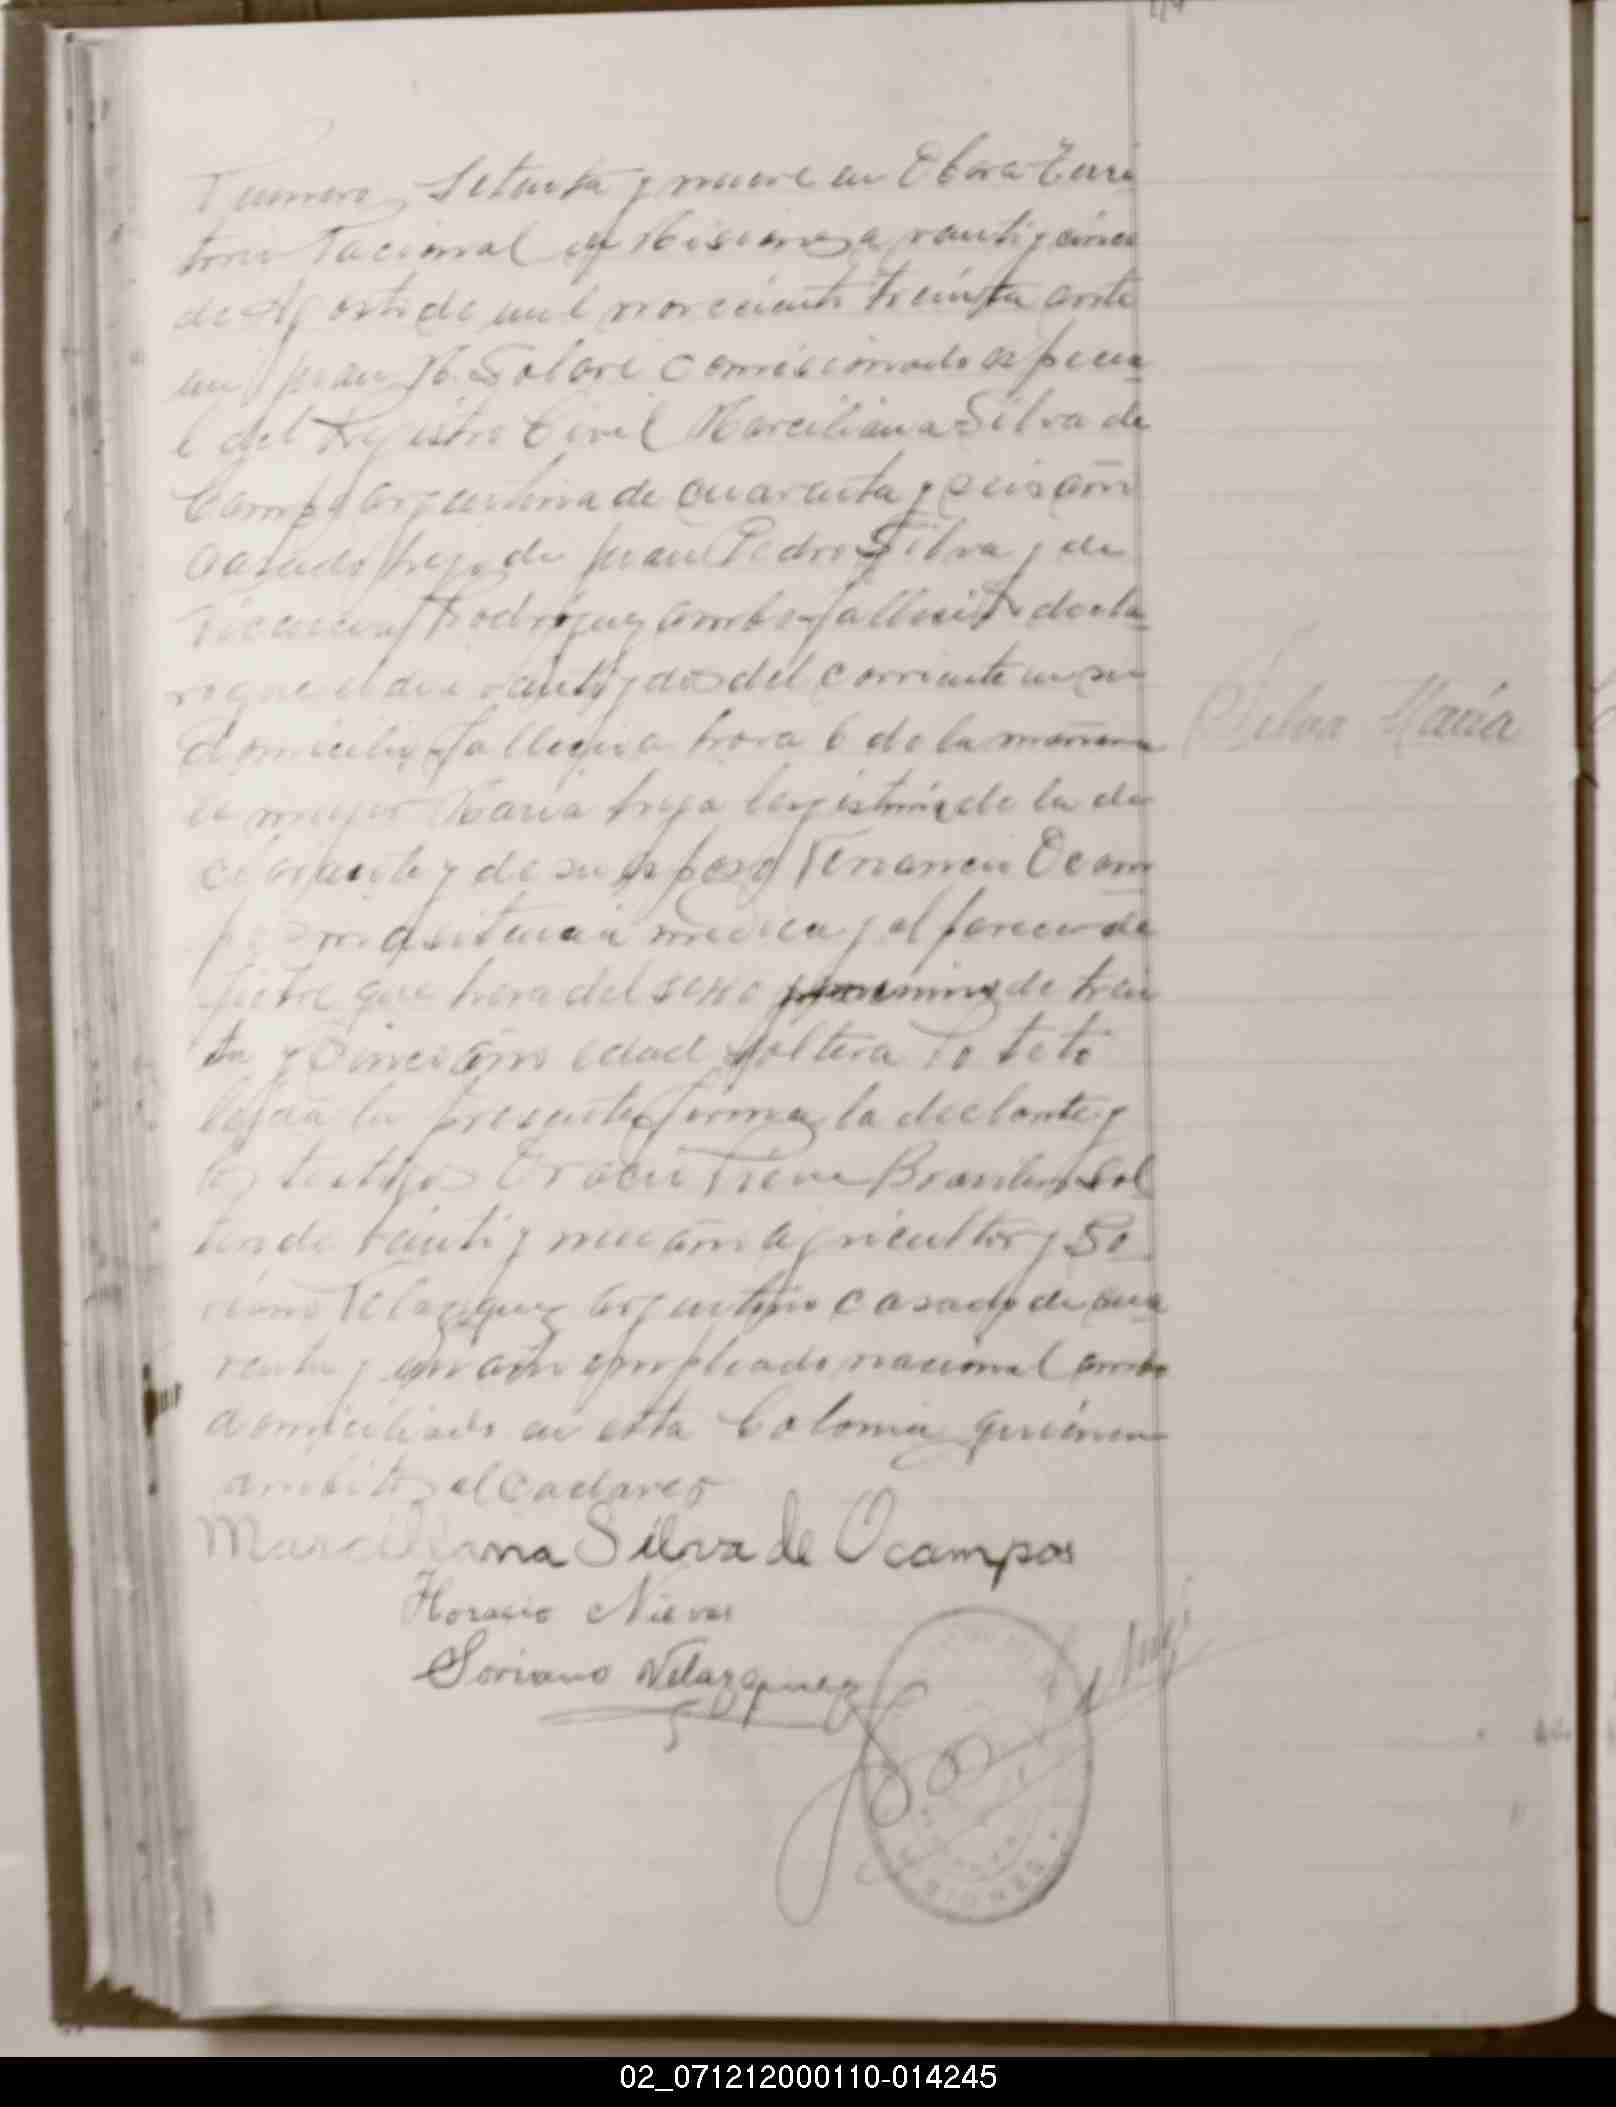 Numero Setenta y nueve en Obera Terri
torio Nacional de Misiones a vainti y cinco
de Agosto de mil novecientos treinta ante
mi Juan M. Solari comisionado especia
l del Registro Civil Marciliana Silva de
Campo argentina de cuarenta y seis año
casado hijo de Juan Pedro Silva y de
Rodriguez ambos fallecido decla
ro que el dia vainti y dos del corriente en su
domicilio fallecio a hora 6 de la mañana
la mujer Maria hija de la de
clarante y de su esposo Venancio Ocam
po asistencia medica y al parecer de
fiebre que hera del sexo de trei
ta y cinco años edad soltera
la presente firma la declante y
los testigos Oracio Nieve Brasilero sol
tero de vainti y nueve año agricultor y So
riano Velazquez argentino casado de cua
renta y un año empleado nacional ambo
domiciliado en esta Colonia quienes
el cadaver
Silva Maria
Marciliana Silva de Ocampos
Horacio Nieves
Soriano Velazquez
MISIONES
02_071212000110-014245